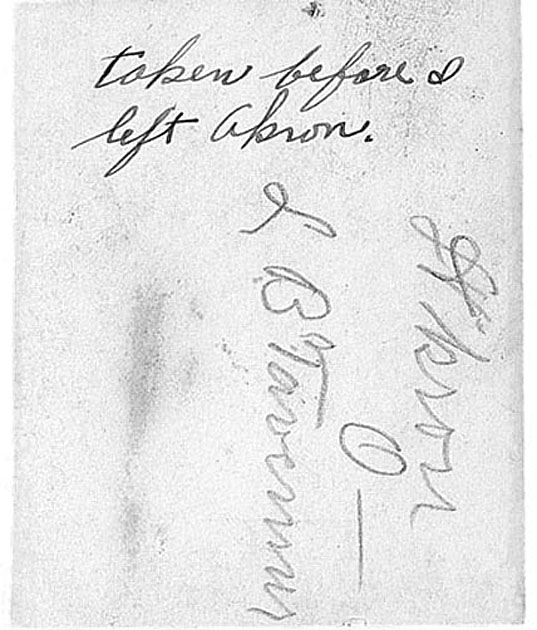 taken before I
left Akron.
Akron
O—
L B Tavenner